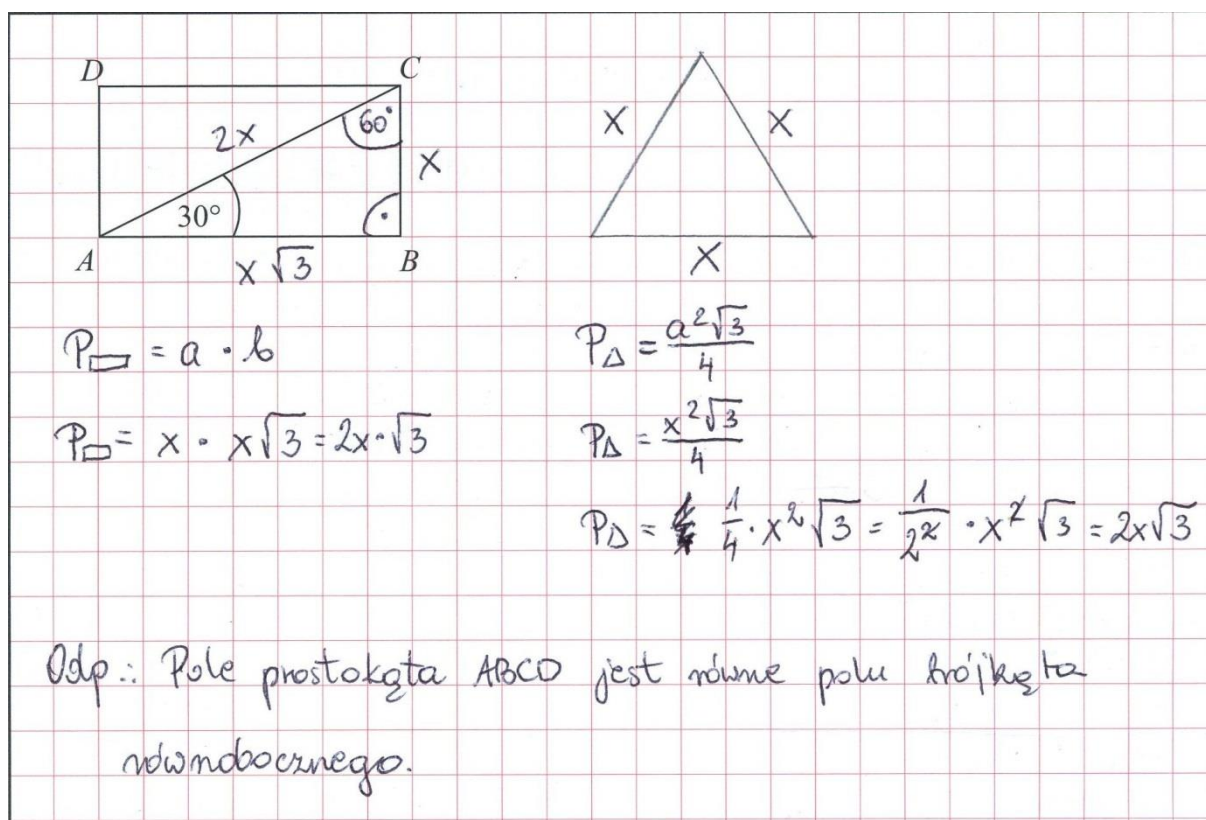 D C
2x 60°
x
30°
A x√3 B
x x
x
P▭ = a · b
P▭ = x · x√3 = 2x · √3
P△ = a²√3/4
P△ = x²√3/4
P△ = 1/4 · x²√3 = 1/2² · x²√3 = 2x√3
Odp.: Pole prostokąta ABCD jest równe polu trójkąta
równobocznego.